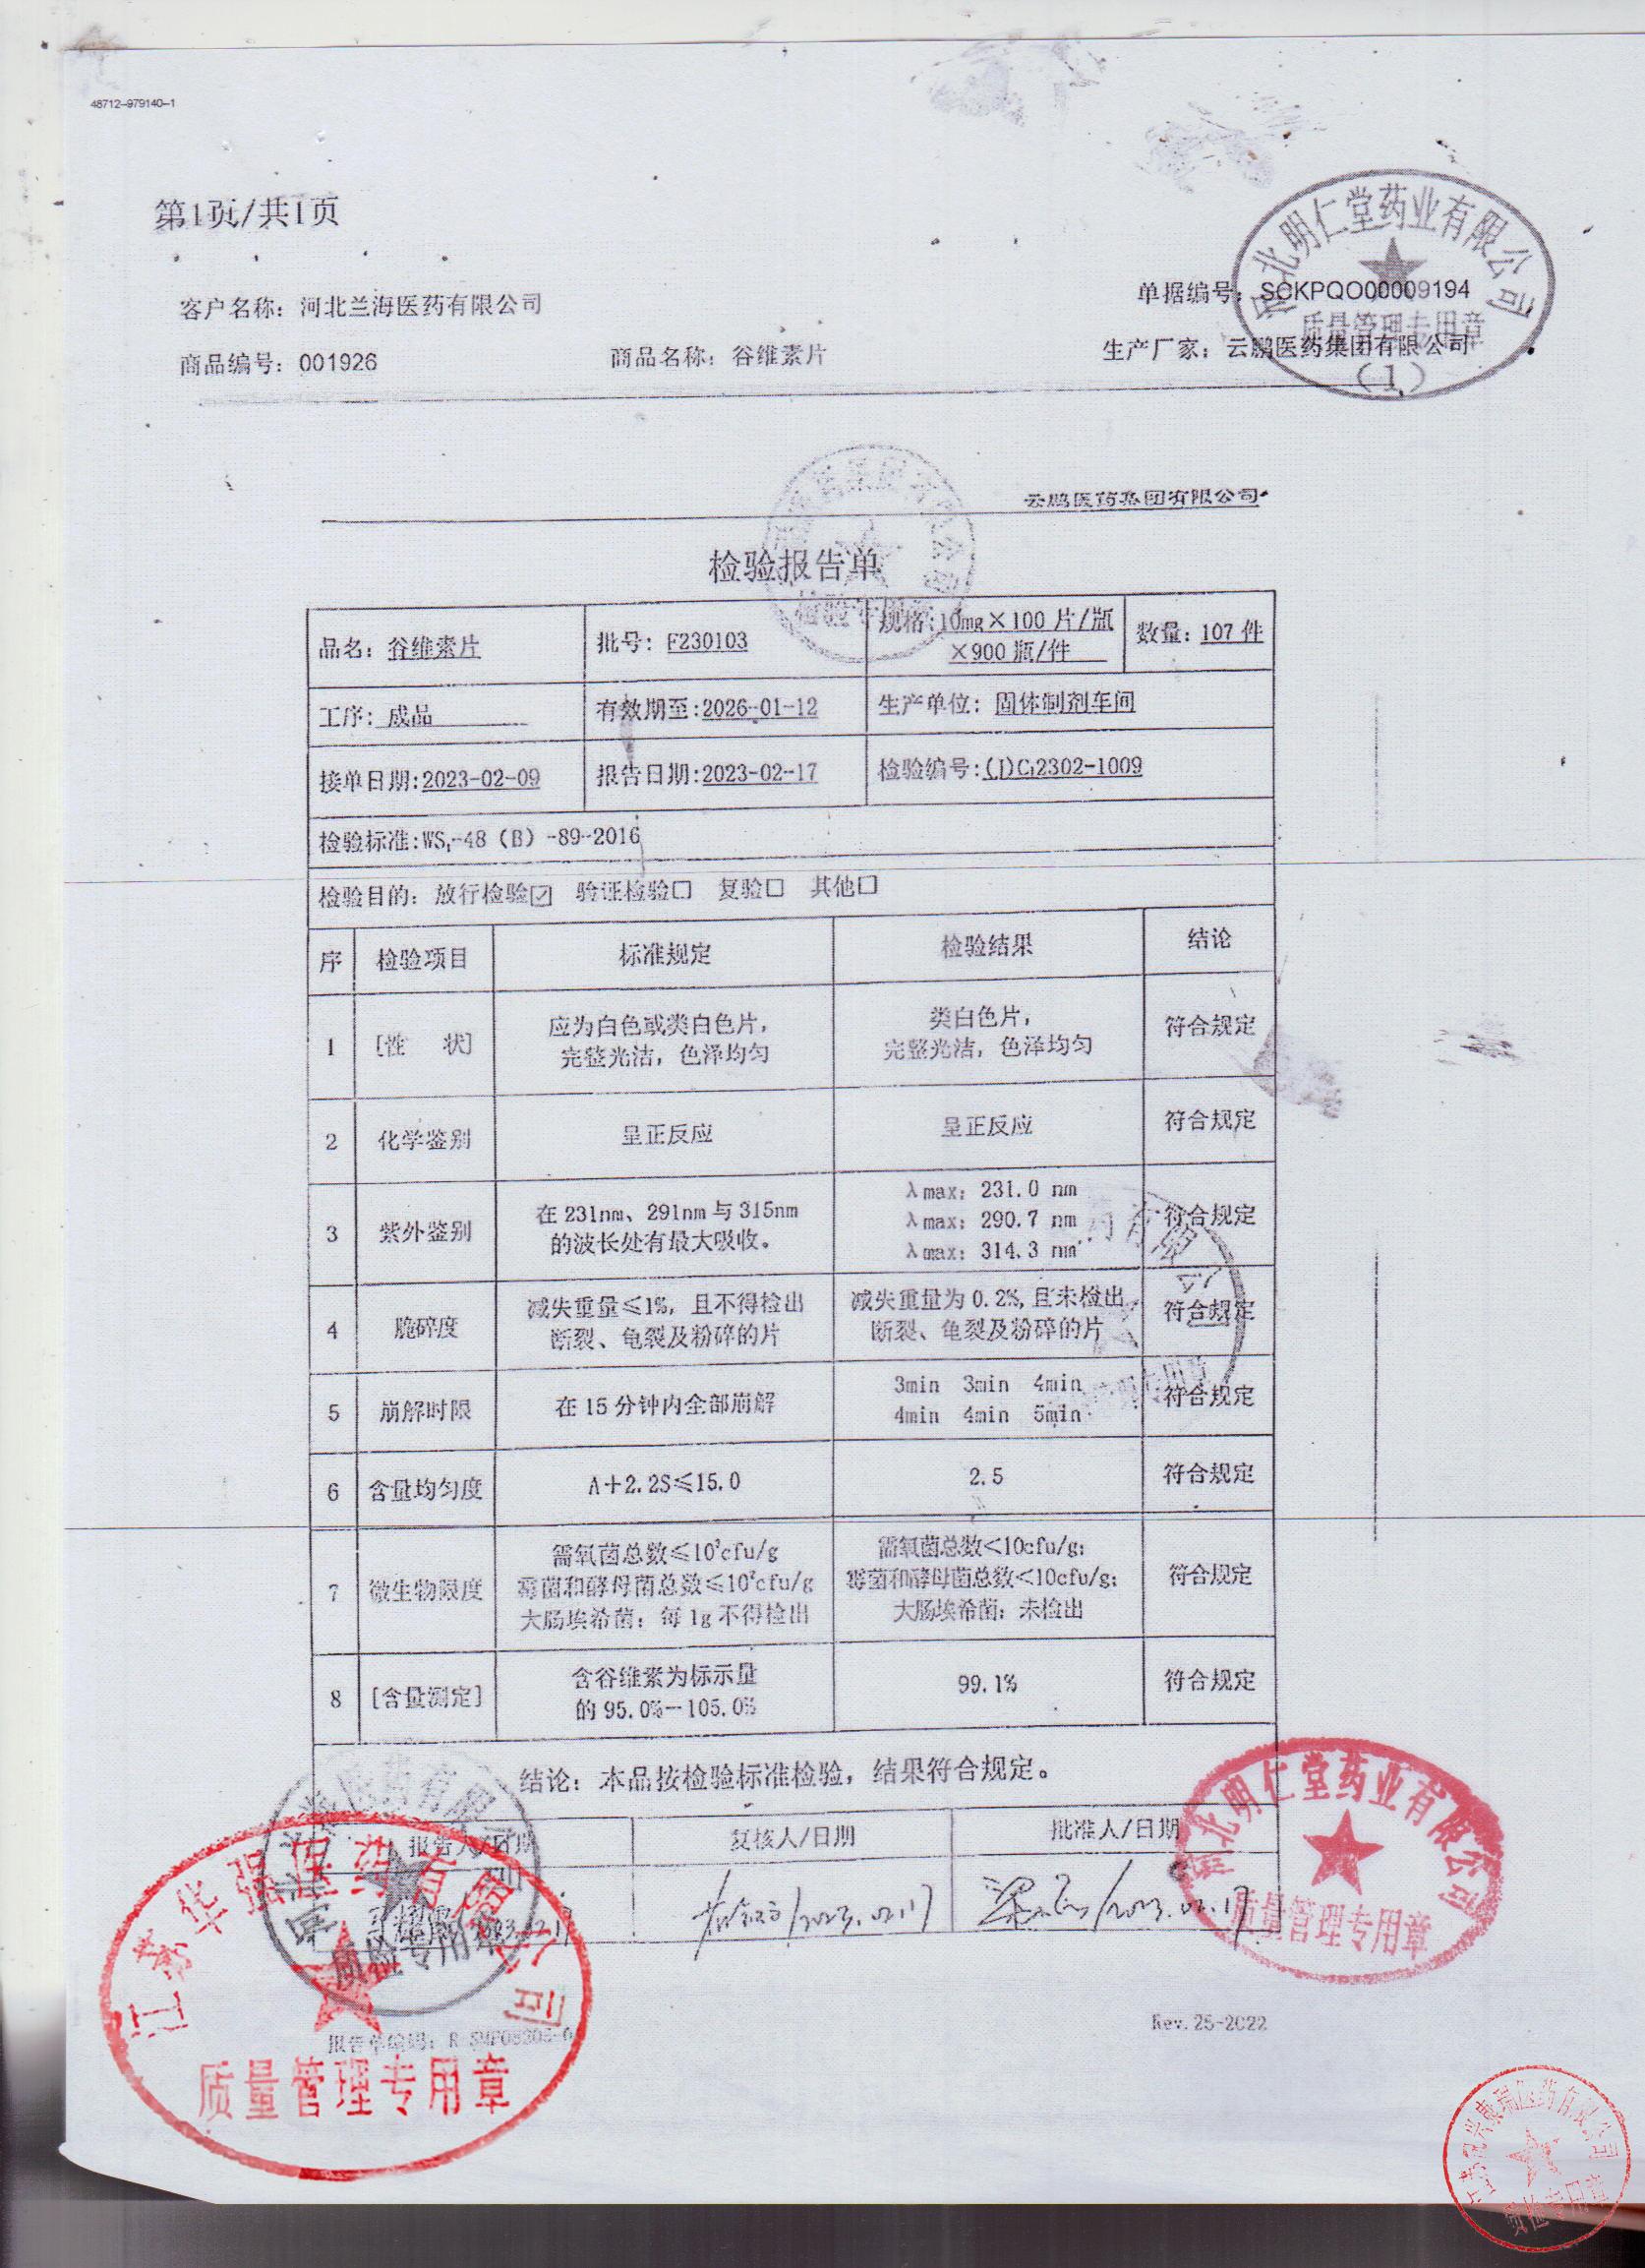 48712-979140-1
第1页/共1页
客户名称：河北兰海医药有限公司
单据编号：SCKPQO00009194
商品编号：001926
商品名称：谷维素片
生产厂家：云鹏医药集团有限公司
河北明仁堂药业有限公司
质量管理专用章
（1）
云鹏医药集团有限公司
检验报告单
品名：谷维素片
批号：F230103
规格：10mg×100片/瓶
×900瓶/件
数量：107件
工序：成品
有效期至：2026-01-12
生产单位：固体制剂车间
接单日期：2023-02-09
报告日期：2023-02-17
检验编号：(J)C2302-1009
检验标准：WS₁-48（B）-89-2016
检验目的：放行检验☑ 验证检验□ 复验□ 其他□
序 检验项目 标准规定 检验结果 结论
1 [性 状] 应为白色或类白色片，完整光洁，色泽均匀 类白色片，完整光洁，色泽均匀 符合规定
2 化学鉴别 呈正反应 呈正反应 符合规定
3 紫外鉴别 在231nm、291nm与315nm的波长处有最大吸收。 λmax：231.0 nm λmax：290.7 nm λmax：314.3 nm 符合规定
4 脆碎度 减失重量≤1%，且不得检出断裂、龟裂及粉碎的片 减失重量为0.2%，且未检出断裂、龟裂及粉碎的片 符合规定
5 崩解时限 在15分钟内全部崩解 3min 3min 4min 4min 4min 5min 符合规定
6 含量均匀度 A＋2.2S≤15.0 2.5 符合规定
7 微生物限度 需氧菌总数≤10³cfu/g 霉菌和酵母菌总数≤10²cfu/g 大肠埃希菌：每1g不得检出 需氧菌总数<10cfu/g； 霉菌和酵母菌总数<10cfu/g； 大肠埃希菌：未检出 符合规定
8 [含量测定] 含谷维素为标示量的95.0%－105.0% 99.1% 符合规定
结论：本品按检验标准检验，结果符合规定。
报告人/日期 复核人/日期 批准人/日期
/2023.02.17 /2023.02.17
河北明仁堂药业有限公司
质量管理专用章
质检专用章
江苏华强医药有限公司
质量管理专用章
报告单编码：R-SMP08305-6
Rev.25-2022